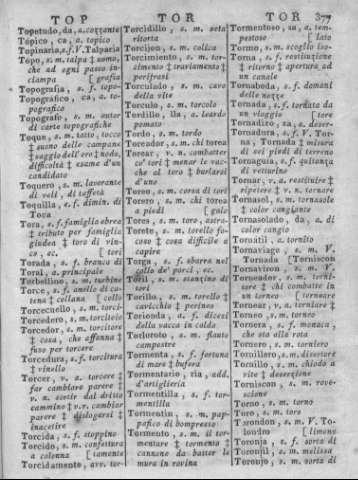 TOP
TOR
TOR 377
Topetudo, da, a. cozzante
Tópico, ca, a. topico
Topinaria, s. f. V. Talparia
Topo, s. m. talpa ‡ uomo,
che ad ogni passo in-
ciampa [ grafia
Topografía, s. f. topo-
Topográfico, ca, a. to-
pografico
Topógrafo, s. m. autor
di carte topografiche
Toque, s. m. tatto, tocco
‡ suono delle campane
‡ saggio dell'oro ‡ nodo,
difficoltà ‡ esame d'un
candidato
Toquero, s. m. lavorante
di veli, di toffetà
Toquilla, s. f. dimin. di
Toca
Tora, s. f. famiglia ebrea
‡ tributo per famiglia
giudea ‡ toro di vin-
co, ec. [ tori
Torada, s. f. branco di
Toral, a. principale
Torbellino, s. m. turbine
Torce, s. f. anello di ca-
tena ‡ collana [ collo
Torcecuello, s. m. torci-
Torcedero, s. m. torcitoio
Torcedor, s. m. torcitore
‡ cosa, che affanna ‡
fuso per torcere
Torcedura, s. f. torcitura
‡ vinello
Torcer, v. a. torcere ‡
far cambiare parere ‡
v. n. uscire dal dritto
cammino ‡ v. r. cambiar
parere ‡ dislogarsi ‡
inacetire
Torcida, s. f. stoppino
Torcido, s. m. confettura
a colonna [ tamente
Torcidamente, avv. tor-
Torcidillo, s. m. seta
ritorta
Torcijon, s. m. colica
Torcimiento, s. m. tor-
cimento ‡ traviamento ‡
perifrasi
Torculado, s. m. cavo
della vite
Tórculo, s. m. torcolo
Tordillo, lla, a. leardo
pomato
Tordo, s. m. tordo
Toreador, s. m. chi torea
Torear, v. n. combatter
co' tori ‡ menar le vac-
che al toro ‡ burlarsi
d'uno
Toreo, s. m. corsa di tori
Torero, s. m. chi torea
a piedi [ guil
Tores, s. m. toro, astra-
Torete, s. m. torello fo-
coso ‡ cosa difficile a
capire
Torga, s. f. sbarra nel
collo de' porci, ec.
Toril, s. m. stanzino di
tori
Torillo, s. m. torello ‡
cavicchio ‡ perineo
Torionda, a. f. dicesi
della vacca in caldo
Torloroto, s. m. flauto
campestre
Tormenta, s. f. fortuna
di mare ‡ bufera
Tormentario, ria, add.
d'artiglieria
Tormentilla, s. f. tor-
mentilla
Tormentin, s. m. pap-
pafico di bompresso
Tormento, s. m. il tor-
mentare ‡ tormento ‡
cannone da batter le
mura in rovina
Tormentoso, sa, a. tem-
pestoso [ lato
Tormo, s. m. scoglio iso-
Torna, s. f. restituzione
‡ ritorno ‡ apertura ad
un canale
Tornaboda, s. f. domani
delle nozze
Tornada, s. f. tornata da
un viaggio [ tore
Tornadizo, za, a. deser-
Tornadura, s. f. V. Tor-
na, Tornada ‡ misura
di sei piedi di terreno
Tornaguia, s. f. quitanza
di vetturino
Tornar, v. a. restituire ‡
ripetere ‡ v. n. tornare
Tornasol, s. m. tornasole
‡ color cangiante
Tornasolado, da, a. di
color cangio
Tornatil, a. tornito
Tornaviage, s. m. V.
Tornada [ Torniscon
Tornaviron, s. m. V.
Torneador, s. m. torni-
tore ‡ chi combatte in
un torneo [ torneare
Tornear, v. a. torniare ‡
Torneo, s. m. torneo
Tornera, s. f. monaca,
che sta alla rota
Tornero, s. m. torniero
Tornillero, s. m. disertore
Tornillo, s. m. chiodo a
vite ‡ deserzione
Torniscon, s. m. rove-
scione
Torno, s. m. torno
Toro, s. m. toro
Torondon, s. m. V. To-
londro [ limone
Toronja, s. f. sorta di
Toronjil, s. m. melissa
Toronjo, s. m. sorta di